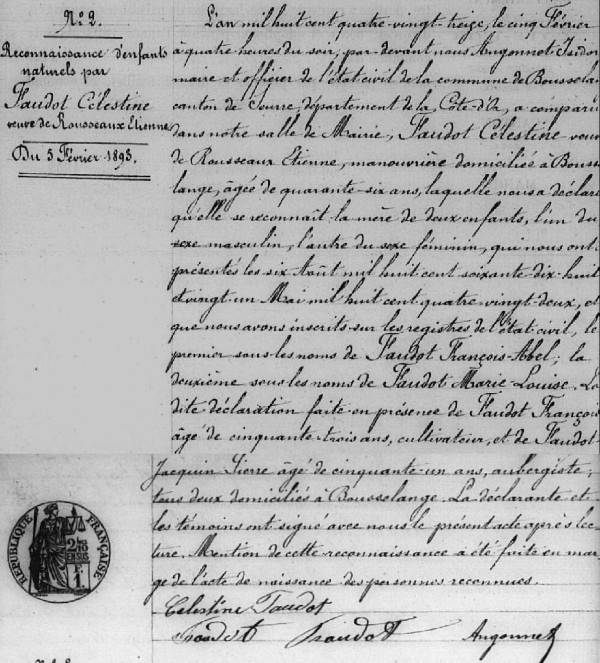 N° 2.
Reconnaissance d'enfants
naturels par
Faudot Célestine
veuve de Rousseaux Etienne
Du 5 Février 1893.
L'an mil huit cent quatre-vingt-treize, le cinq Février
à quatre heures du soir, par-devant nous Angonnet Isidor
maire et officier de l'état civil de la commune de Bousselan
canton de Seurre, département de la Côte-d'Or, a comparu
dans notre salle de Mairie, Faudot Célestine veuve
de Rousseaux Etienne, manouvrière domiciliée à Bousse
lange, âgée de quarante-six ans, laquelle nous a déclaré
qu'elle se reconnaît la mère de deux enfants, l'un du
sexe masculin, l'autre du sexe féminin, qui nous ont
présentés les six Août mil huit cent soixante-dix-huit
et vingt-un Mai mil huit cent quatre-vingt-deux, et
que nous avons inscrits sur les registres de l'état civil, le
premier sous les noms de Faudot François-Abel; la
deuxième sous les noms de Faudot Marie Louise. La
dite déclaration faite en présence de Faudot François
âgé de cinquante-trois ans, cultivateur, et de Faudot-
Jacquin Pierre âgé de cinquante-un ans, aubergiste,
tous deux domiciliés à Bousselange. La déclarante et
les témoins ont signé avec nous le présent acte après lec-
ture. Mention de cette reconnaissance a été faite en mar-
ge de l'acte de naissance des personnes reconnues.
Célestine Faudot
Faudot Faudot Angonnet
REPUBLIQUE FRANÇAISE